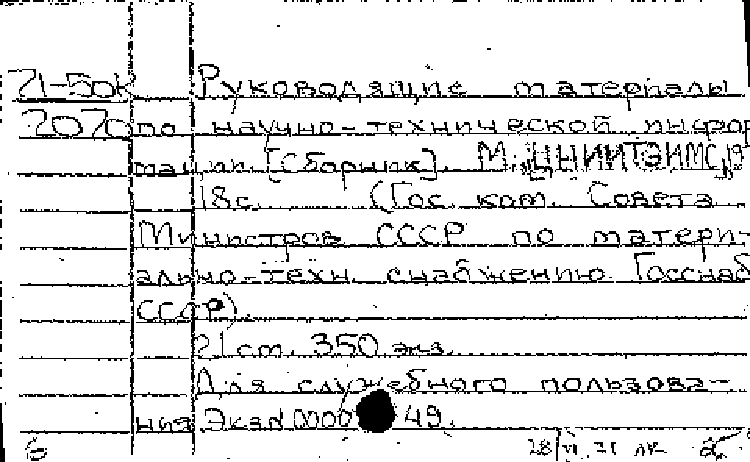 71-50к Руководящие материалы
7070 по научно-технической инфор
мации. [Сборник]. М., ЦНИИТЭИМС,
18с. (Гос. ком. Совета
Министров СССР по матери-
ально-техн. снабжению Госснаб
СССР).
21 см. 350 экз.
Для служебного пользова-
ния Экз.N 0000 49.
6 28/VI.71